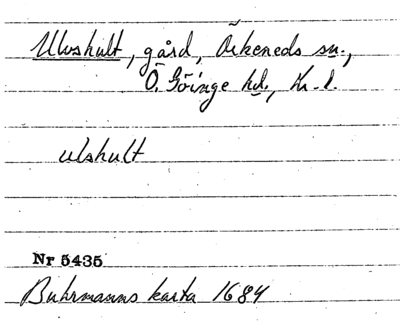 Ulvshult, gård, Örkeneds sn.,
Ö. Göinge hd., Kr. l.
ulshult
Nr 5435
Buhrmanns karta 1684